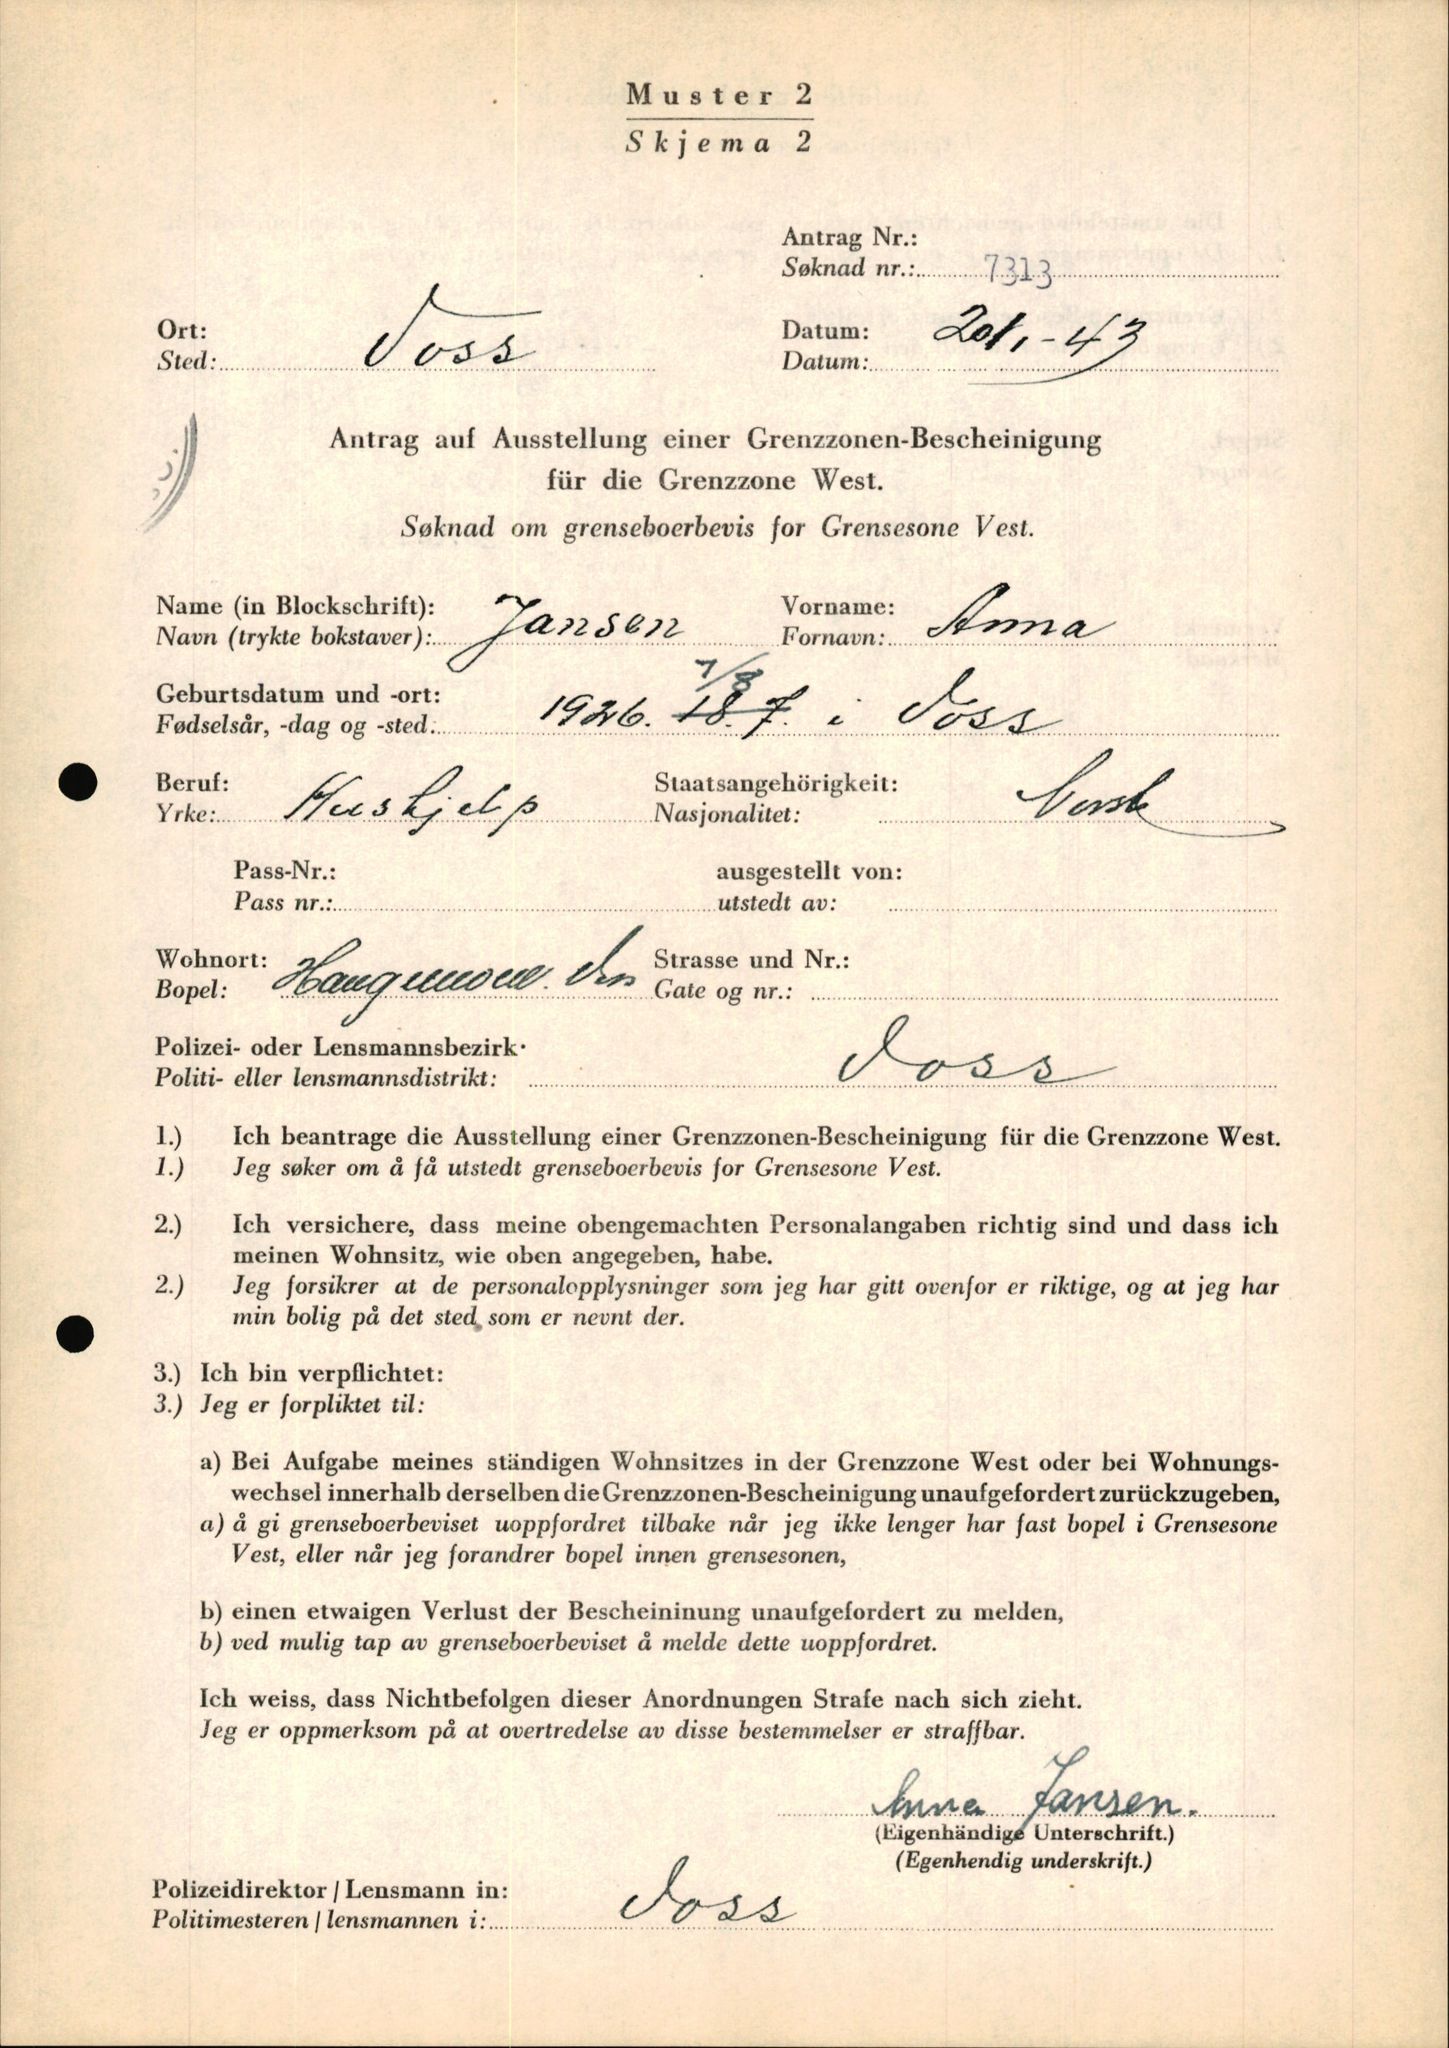 Muster 2
Skjema 2
Antrag Nr.:
Søknad nr.: 7313
Ort:
Sted: Voss
Datum:
Datum: 20/1-43
Antrag auf Ausstellung einer Grenzzonen-Bescheinigung
für die Grenzzone West.
Søknad om grenseboerbevis for Grensesone Vest.
Name (in Blockschrift):
Navn (trykte bokstaver): Jansen
Vorname:
Fornavn: Anna
7/8
Geburtsdatum und -ort:
Fødselsår, -dag og -sted: 1926. 18.7. i Voss
Beruf:
Yrke: Hushjelp
Staatsangehörigkeit:
Nasjonalitet: Norsk
Pass-Nr.:
Pass nr.:
ausgestellt von:
utstedt av:
Wohnort:
Bopel:
Strasse und Nr.:
Gate og nr.:
Polizei- oder Lensmannsbezirk:
Politi- eller lensmannsdistrikt: Voss
1.) Ich beantrage die Ausstellung einer Grenzzonen-Bescheinigung für die Grenzzone West.
1.) Jeg søker om å få utstedt grenseboerbevis for Grensesone Vest.
2.) Ich versichere, dass meine obengemachten Personalangaben richtig sind und dass ich
meinen Wohnsitz, wie oben angegeben, habe.
2.) Jeg forsikrer at de personalopplysninger som jeg har gitt ovenfor er riktige, og at jeg har
min bolig på det sted som er nevnt der.
3.) Ich bin verpflichtet:
3.) Jeg er forpliktet til:
a) Bei Aufgabe meines ständigen Wohnsitzes in der Grenzzone West oder bei Wohnungs-
wechsel innerhalb derselben die Grenzzonen-Bescheinigung unaufgefordert zurückzugeben,
a) å gi grenseboerbeviset uoppfordret tilbake når jeg ikke lenger har fast bopel i Grensesone
Vest, eller når jeg forandrer bopel innen grensesonen,
b) einen etwaigen Verlust der Bescheininung unaufgefordert zu melden,
b) ved mulig tap av grenseboerbeviset å melde dette uoppfordret.
Ich weiss, dass Nichtbefolgen dieser Anordnungen Strafe nach sich zieht.
Jeg er oppmerksom på at overtredelse av disse bestemmelser er straffbar.
Anna Jansen.
(Eigenhändige Unterschrift.)
(Egenhendig underskrift.)
Polizeidirektor / Lensmann in:
Politimesteren / lensmannen i: Voss